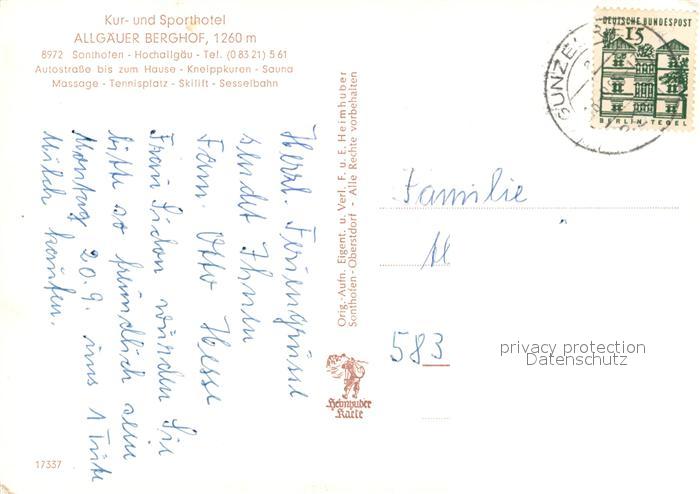 Kur- und Sporthotel
ALLGÄUER BERGHOF, 1260 m
8972 Sonthofen - Hochallgäu - Tel. (0 83 21) 5 61
Autostraße bis zum Hause - Kneippkuren - Sauna
Massage - Tennisplatz - Skilift - Sesselbahn
Herzl. Feriengrüsse
sendet Ihnen
Fam. Otto Hesse
Frau würden Sie
bitte so freundlich sein
Montag 20.9. uns 1 Tüte
Milch kaufen.
17337
Orig.-Aufn. Eigent. u. Verl. F. u. E. Heimhuber
Sonthofen-Oberstdorf - Alle Rechte vorbehalten
Heimhuber
Karte
DEUTSCHE BUNDESPOST
15
BERLIN-TEGEL
GUNZE
Familie
583
privacy protection
Datenschutz